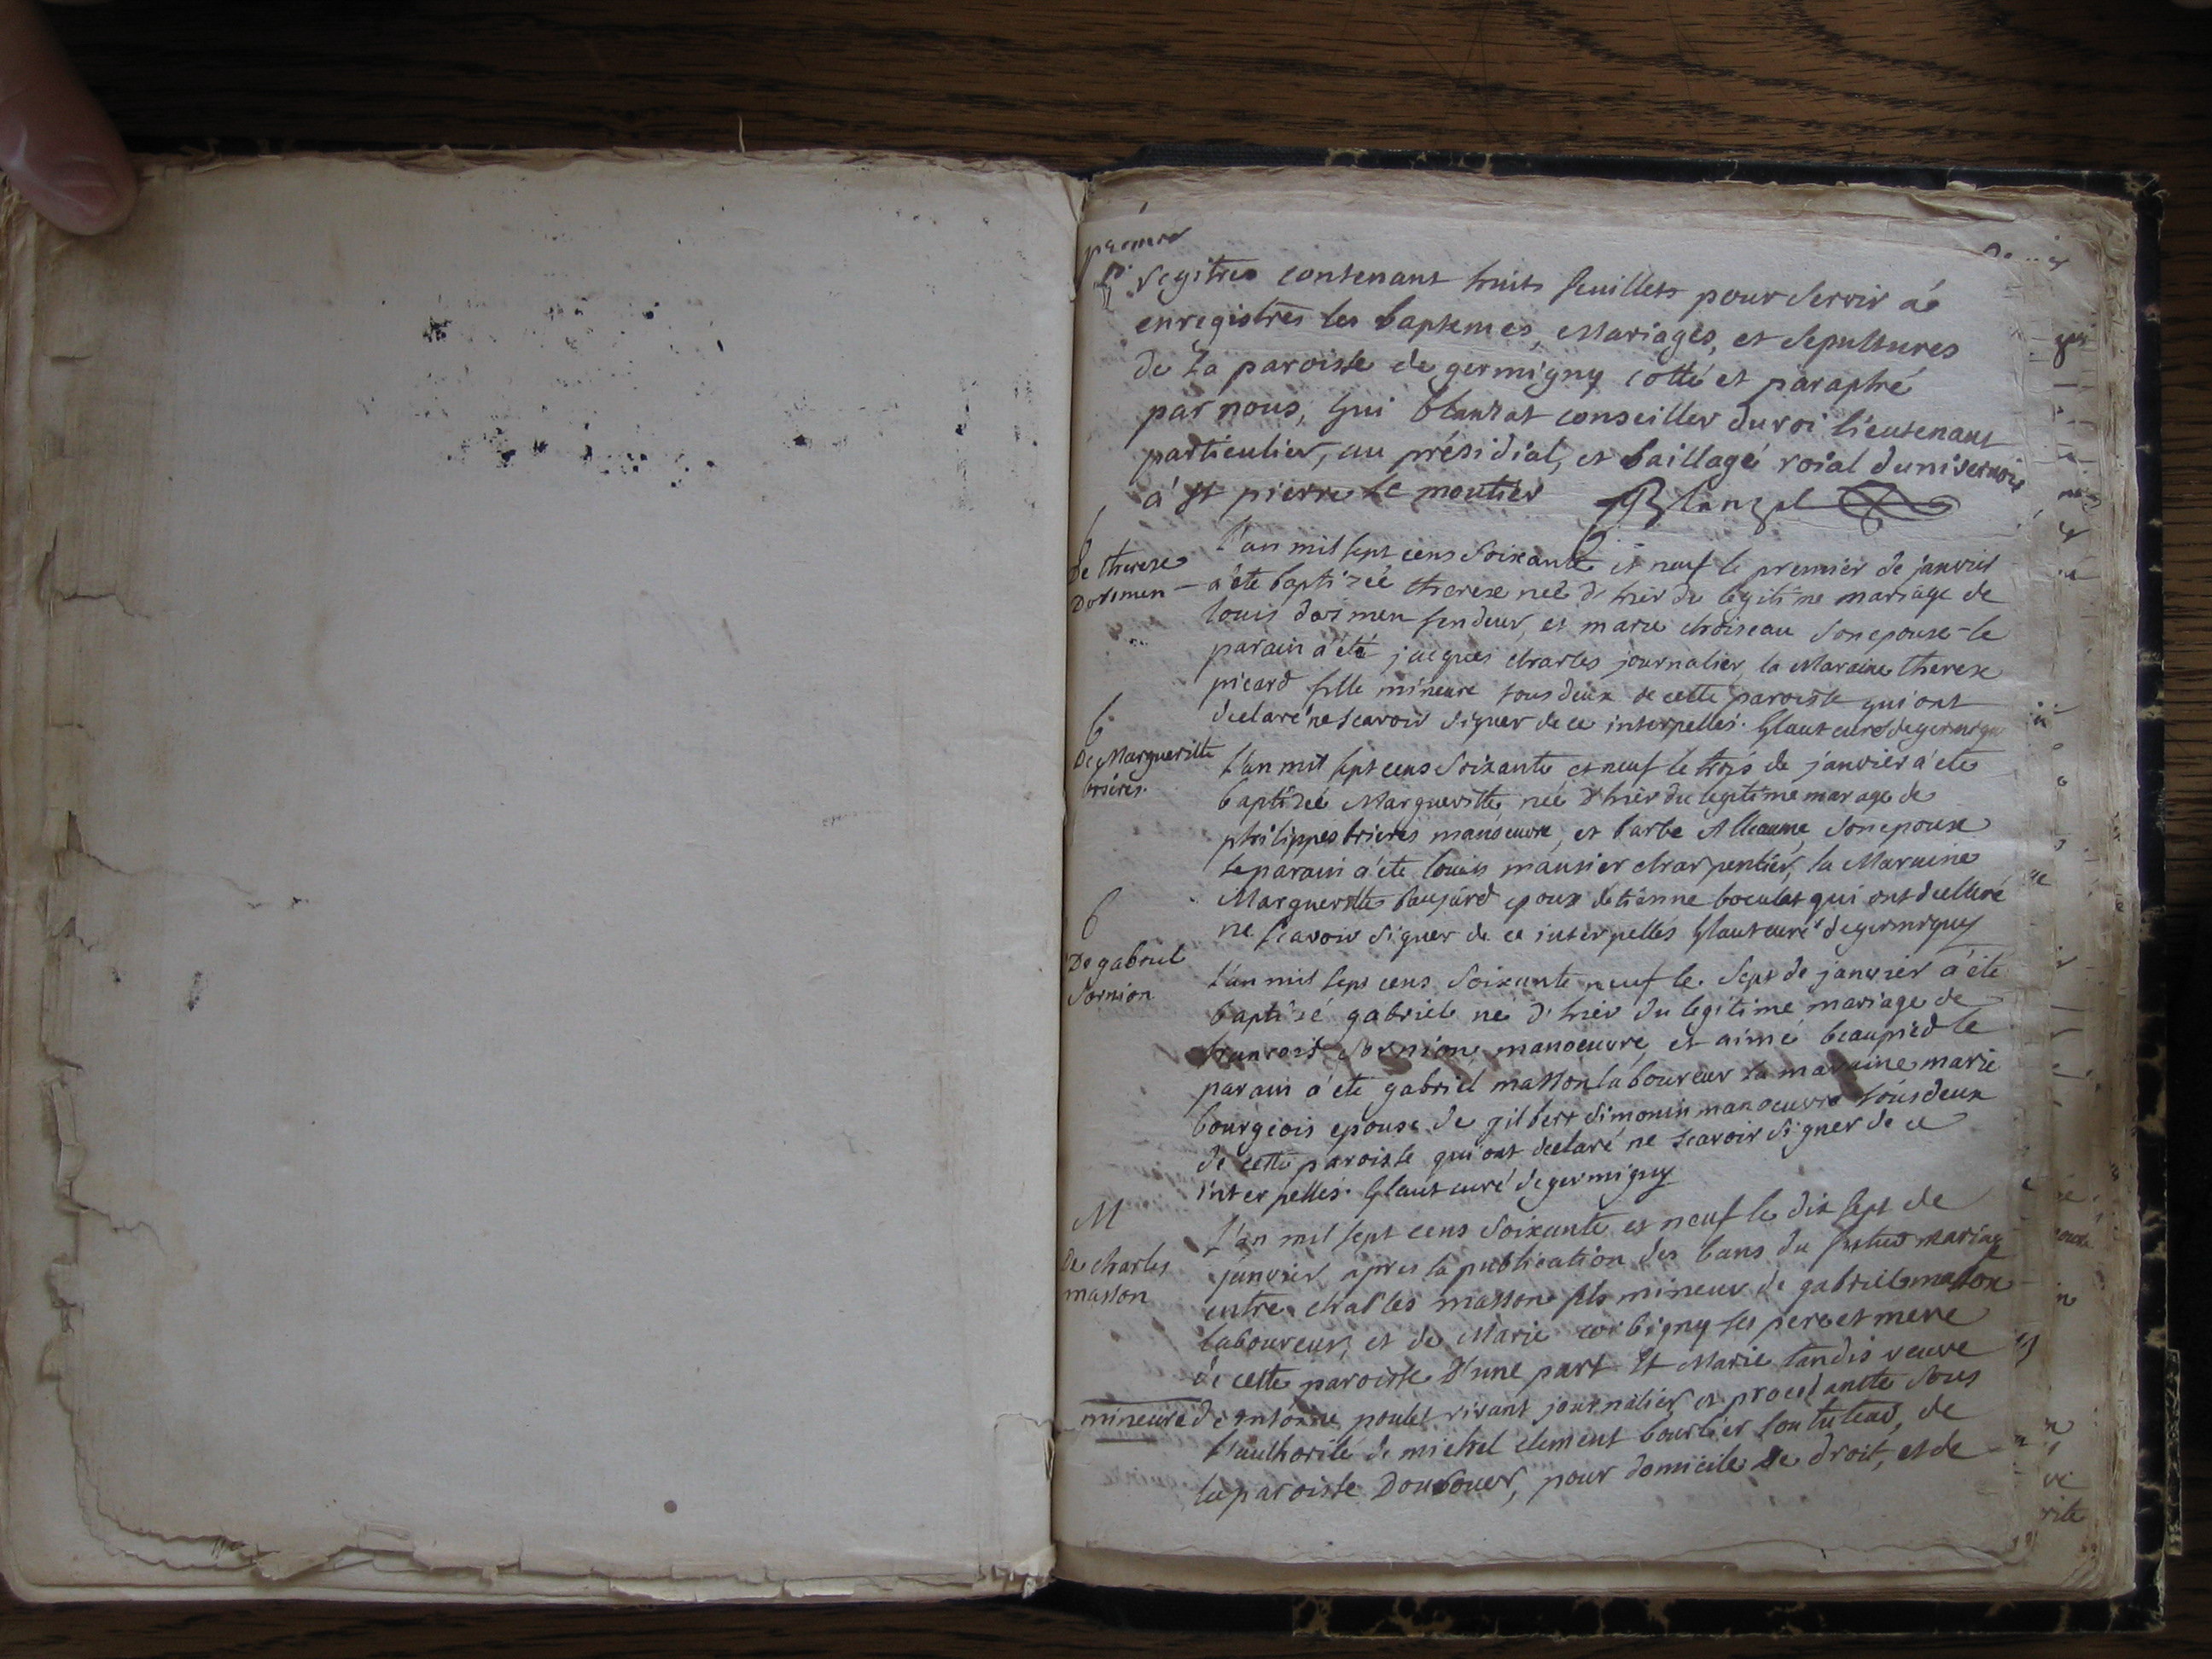 premier
Regitres contenant huits feuillets pour servir aé
enregistrés les baptemes, Mariages, et sepultures
de la paroisse de germigny cotté et paraphé
par nous, gui blanzat conseiller du roi lieutenant
particulier, au présidial, et baillagé roial du nivernois
a' st pierre le moutier Blanzat
b
De therese
Dorsmen
l'an mil sept cens soixante et neuf le premier de janvier
a'ete baptizéé therese neé d'hier du legitime mariage de
louis dorsmen fendeur, et marie choiseau son epouse le
parain a'été jacques charles journalier, la Maraine therese
picard fille mineure tous deux de cette paroisse qui ont
declaré ne scavoir signer de ce interpellés. Glaut curé de germigny
b
De Margueritte
brieres.
l'an mil sept cens soixante et neuf le trois de janvier a'été
baptizéé Margueritte neé d'hier du legitime marage de
philippes brieres manoeuvre, et barbe Alleaume, son epouse
le parain a'ete louis mausier charpentier, la Maraine
Margueritte baujard epouse detienne boculat qui ont declleré
ne scavoir signer de ce interpellés Glaut curé de germigny
b
De gabriel
Sornion
l'an mil sept cens soixante neuf le sept de janvier a'été
baptizé gabriel né d'hier du legitime mariage de
francois Sornion manoeuvre, et aimé beaupied le
parain a'ete gabriel masson laboureur la maraine marie
bourgeois epouse de gilbert simonin manoeuvre tous deux
de cette paroisse qui ont declaré ne scavoir signer de ce
interpellés. Glaut curé de germigny
M
De charles
masson
l'an mil sept cens soixante et neuf le dix sept de
janvier apres la publication des bans du futur mariage
entre charles masson fils mineur de gabriel masson
laboureur, et de Marie corbigny ses pere et mere
de cette paroisse d'une part Et Marie landis veuve
mineure de antoine poulet vivant journalier et procedantte sous
l'authorité de michel clement bourlier son tuteur, de
la paroisse Dourouer, pour domicile de droit, et de